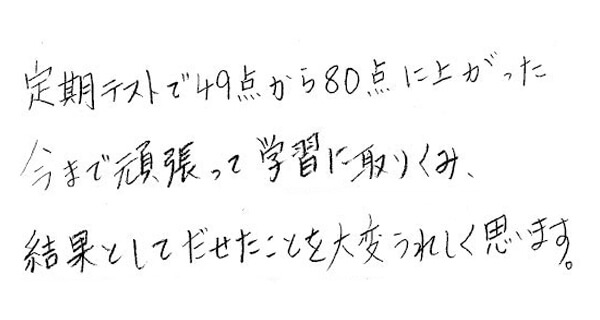 定期テストで49点から80点に上がった
今まで頑張って学習に取りくみ、
結果としてだせたことを大変うれしく思います。